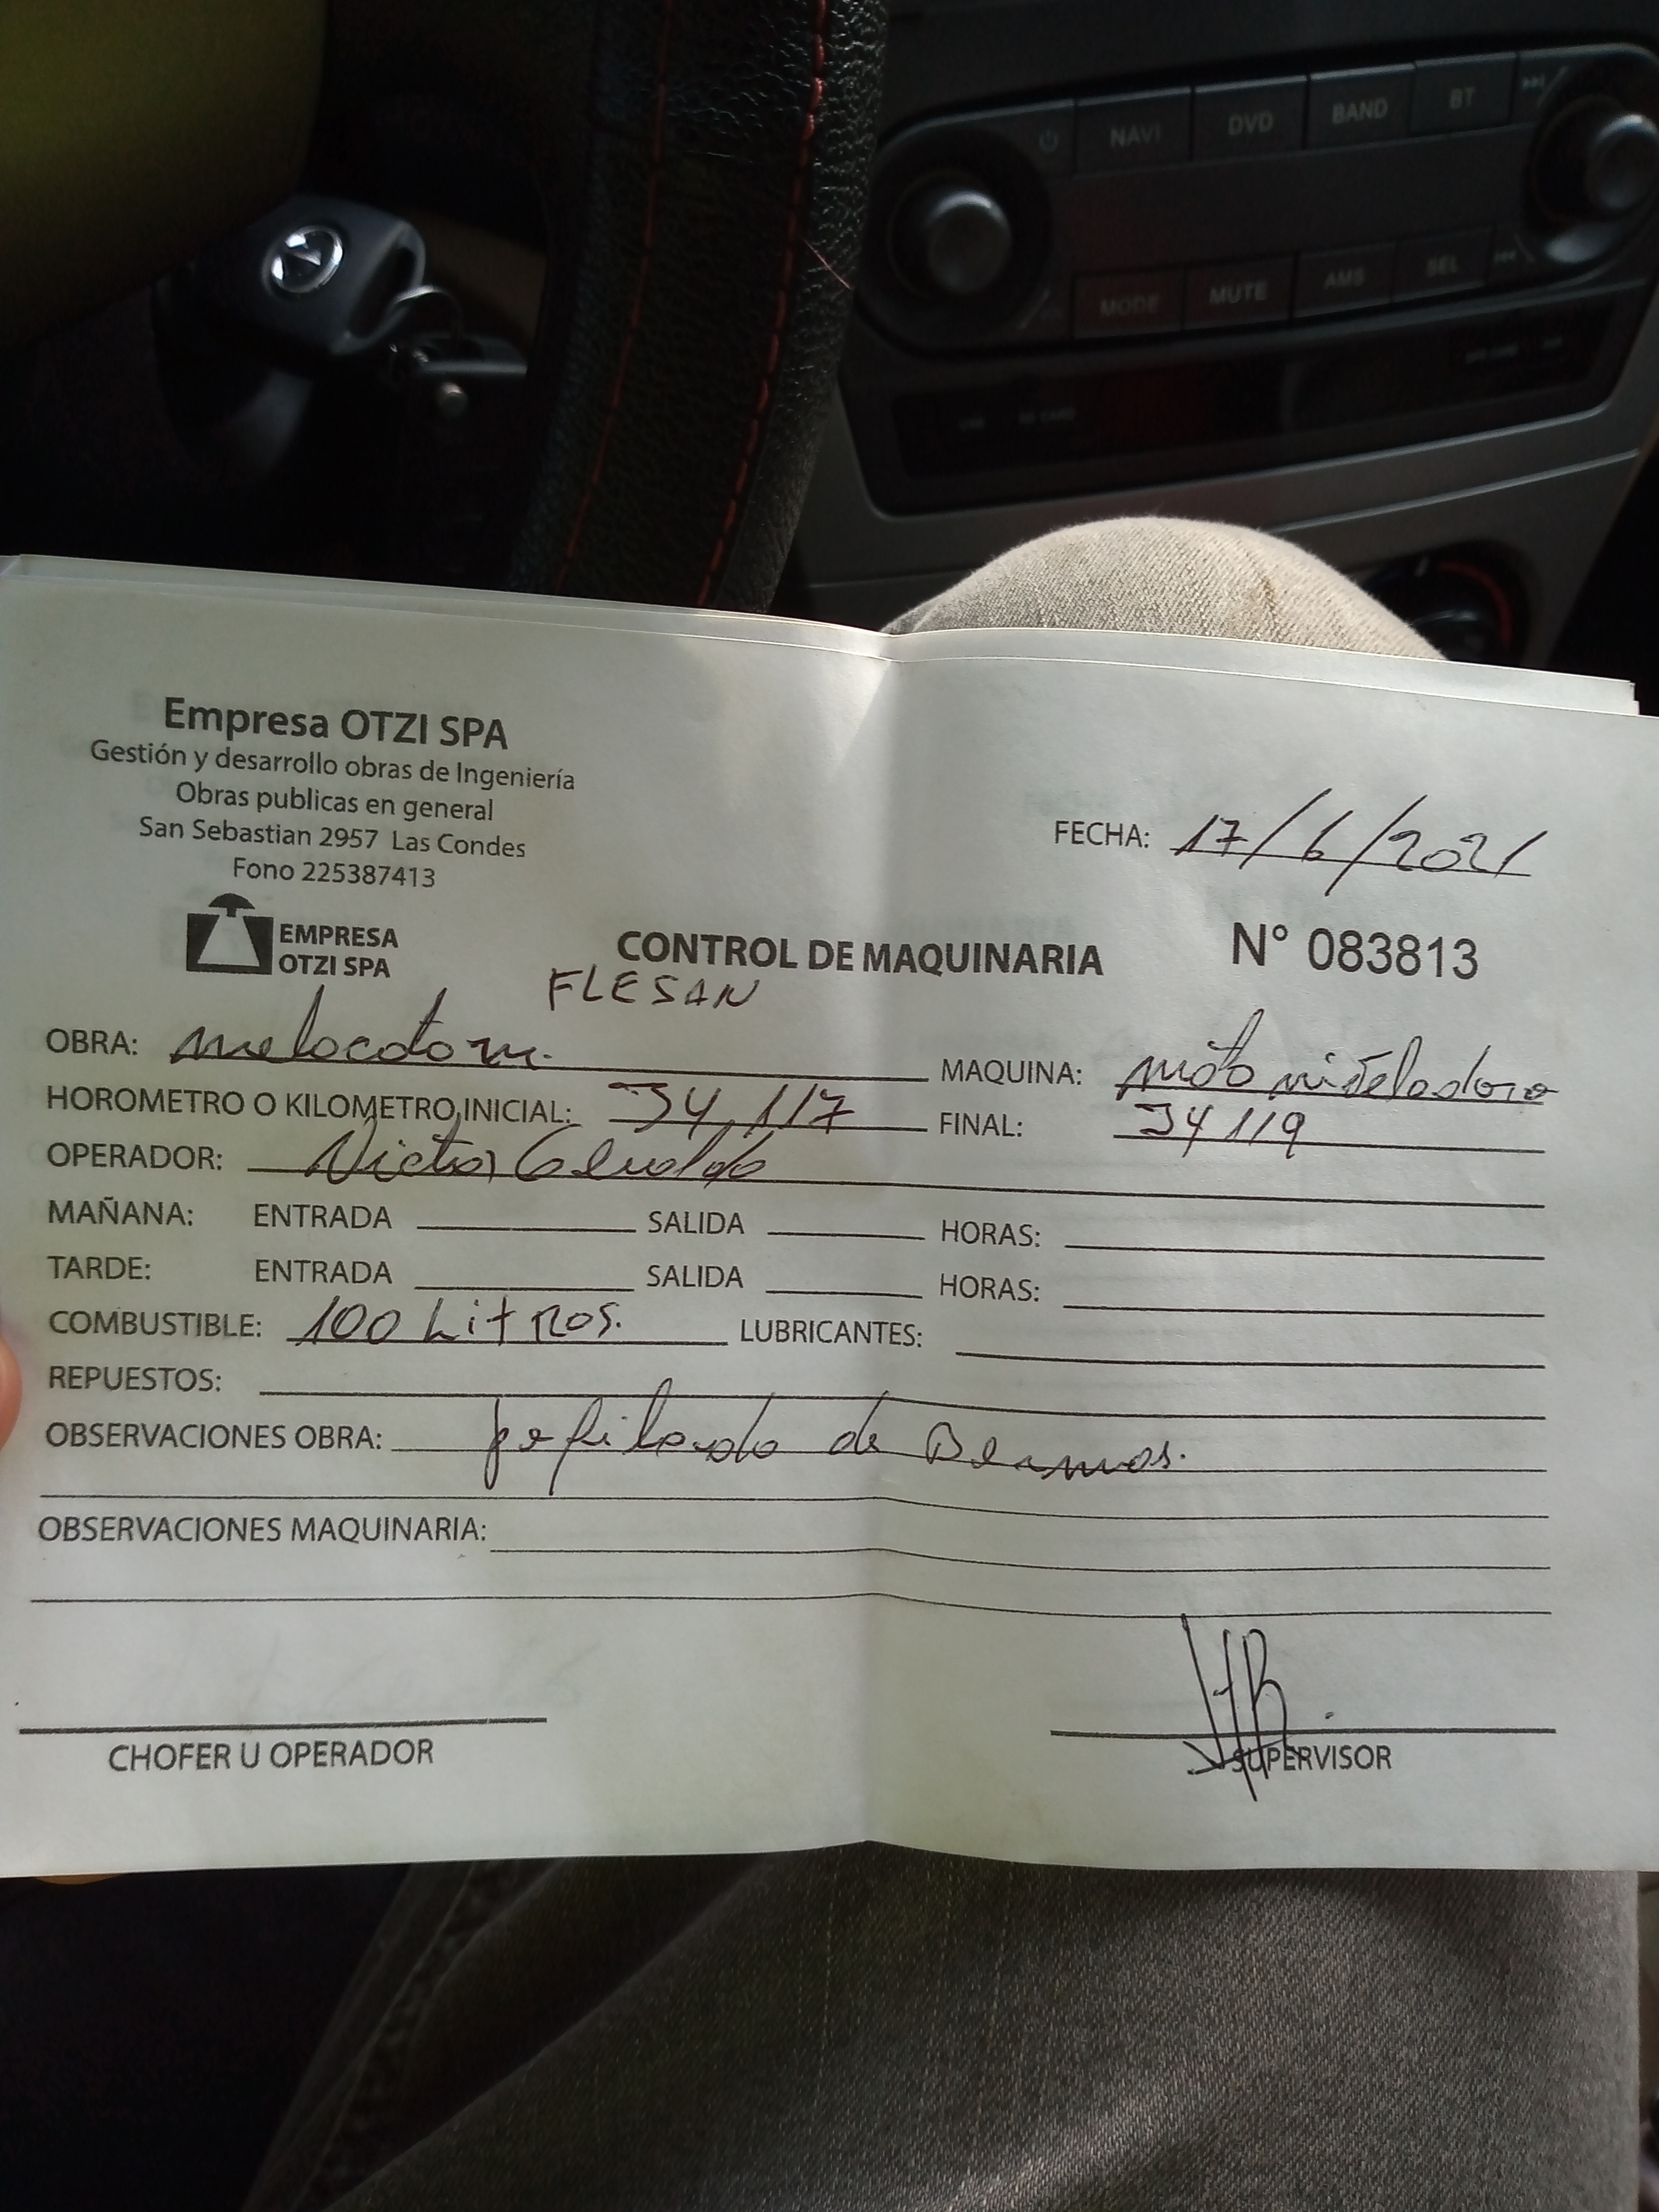 NAVI DVD BAND BT
MODE MUTE AMS SEL
Empresa OTZI SPA
Gestión y desarrollo obras de Ingeniería
Obras publicas en general
San Sebastian 2957 Las Condes
Fono 225387413
FECHA: 17/6/2021
EMPRESA
OTZI SPA
CONTROL DE MAQUINARIA
N° 083813
FLESAN
OBRA: melocoton. MAQUINA: moto niveladora
HOROMETRO O KILOMETRO INICIAL: 34117 FINAL: 34119
OPERADOR: Victor
MAÑANA: ENTRADA SALIDA HORAS:
TARDE: ENTRADA SALIDA HORAS:
COMBUSTIBLE: 100 Litros. LUBRICANTES:
REPUESTOS:
OBSERVACIONES OBRA: perfilado de Bermas.
OBSERVACIONES MAQUINARIA:
CHOFER U OPERADOR
SUPERVISOR